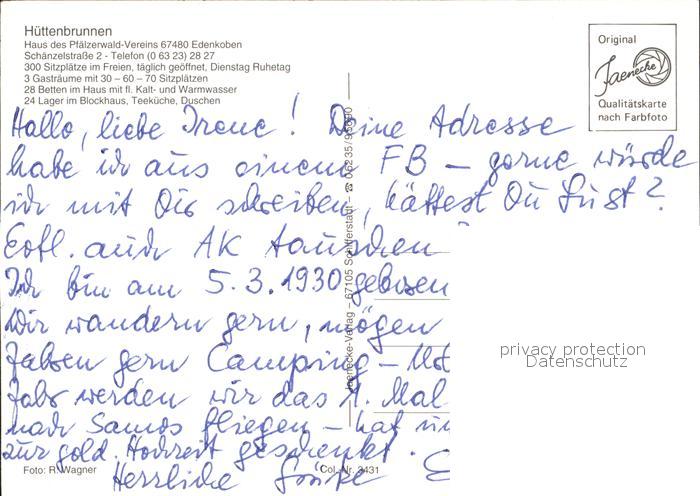 Hüttenbrunnen
Haus des Pfälzerwald-Vereins 67480 Edenkoben
Schänzelstraße 2 - Telefon (0 63 23) 28 27
300 Sitzplätze im Freien, täglich geöffnet, Dienstag Ruhetag
3 Gasträume mit 30 – 60 – 70 Sitzplätzen
28 Betten im Haus mit fl. Kalt- und Warmwasser
24 Lager im Blockhaus, Teeküche, Duschen
Original
Jaenecke
Qualitätskarte
nach Farbfoto
Hallo, liebe Irene! Deine Adresse
habe ich aus einem FB – gerne würde
ich mit Dir schreiben, hättest Du Lust?
Evtl. auch AK tauschen
Ich bin am 5.3.1930 geboren
Wir wandern gern, mögen
fahren gern Camping –
Jahr werden wir das 1. Mal
nach Samos fliegen – hat
zur gold. Hochzeit geschenkt.
Herzliche Grüße
Jaenecke-Verlag – 67105 Schifferstadt
privacy protection
Datenschutz
Foto: R. Wagner
Col.-Nr. 3431